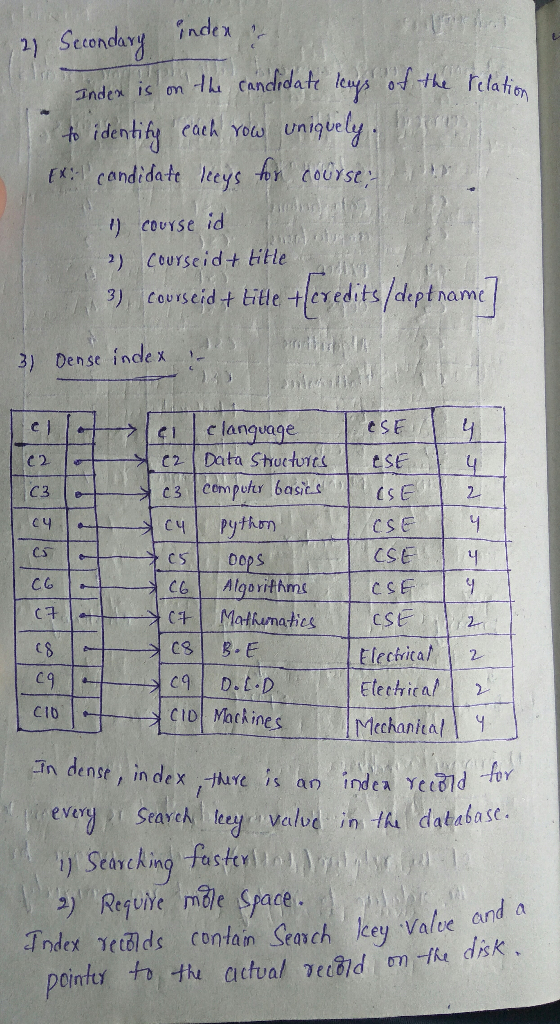 2) Secondary index :-
Index is on the candidate keys of the relation
to identify each row uniquely.
EX:- candidate keys for course:-
1) course id
2) courseid + title
3) courseid + title + [credits/deptname]
3) Dense index :-
c1 → c1 clanguage CSE 4
c2 → c2 Data Structures CSE 4
c3 → c3 computer basics CSE 2
c4 → c4 python CSE 4
c5 → c5 oops CSE 4
C6 → C6 Algorithms CSE 4
C7 → C7 Mathematics CSE 2
C8 → C8 B.E Electrical 2
C9 → C9 D.L.D Electrical 2
C10 → C10 Machines Mechanical 4
In dense, index, there is an index record for
every search key value in the database.
1) Searching faster
2) Require more space.
Index records contain Search key value and a
pointer to the actual record on the disk.